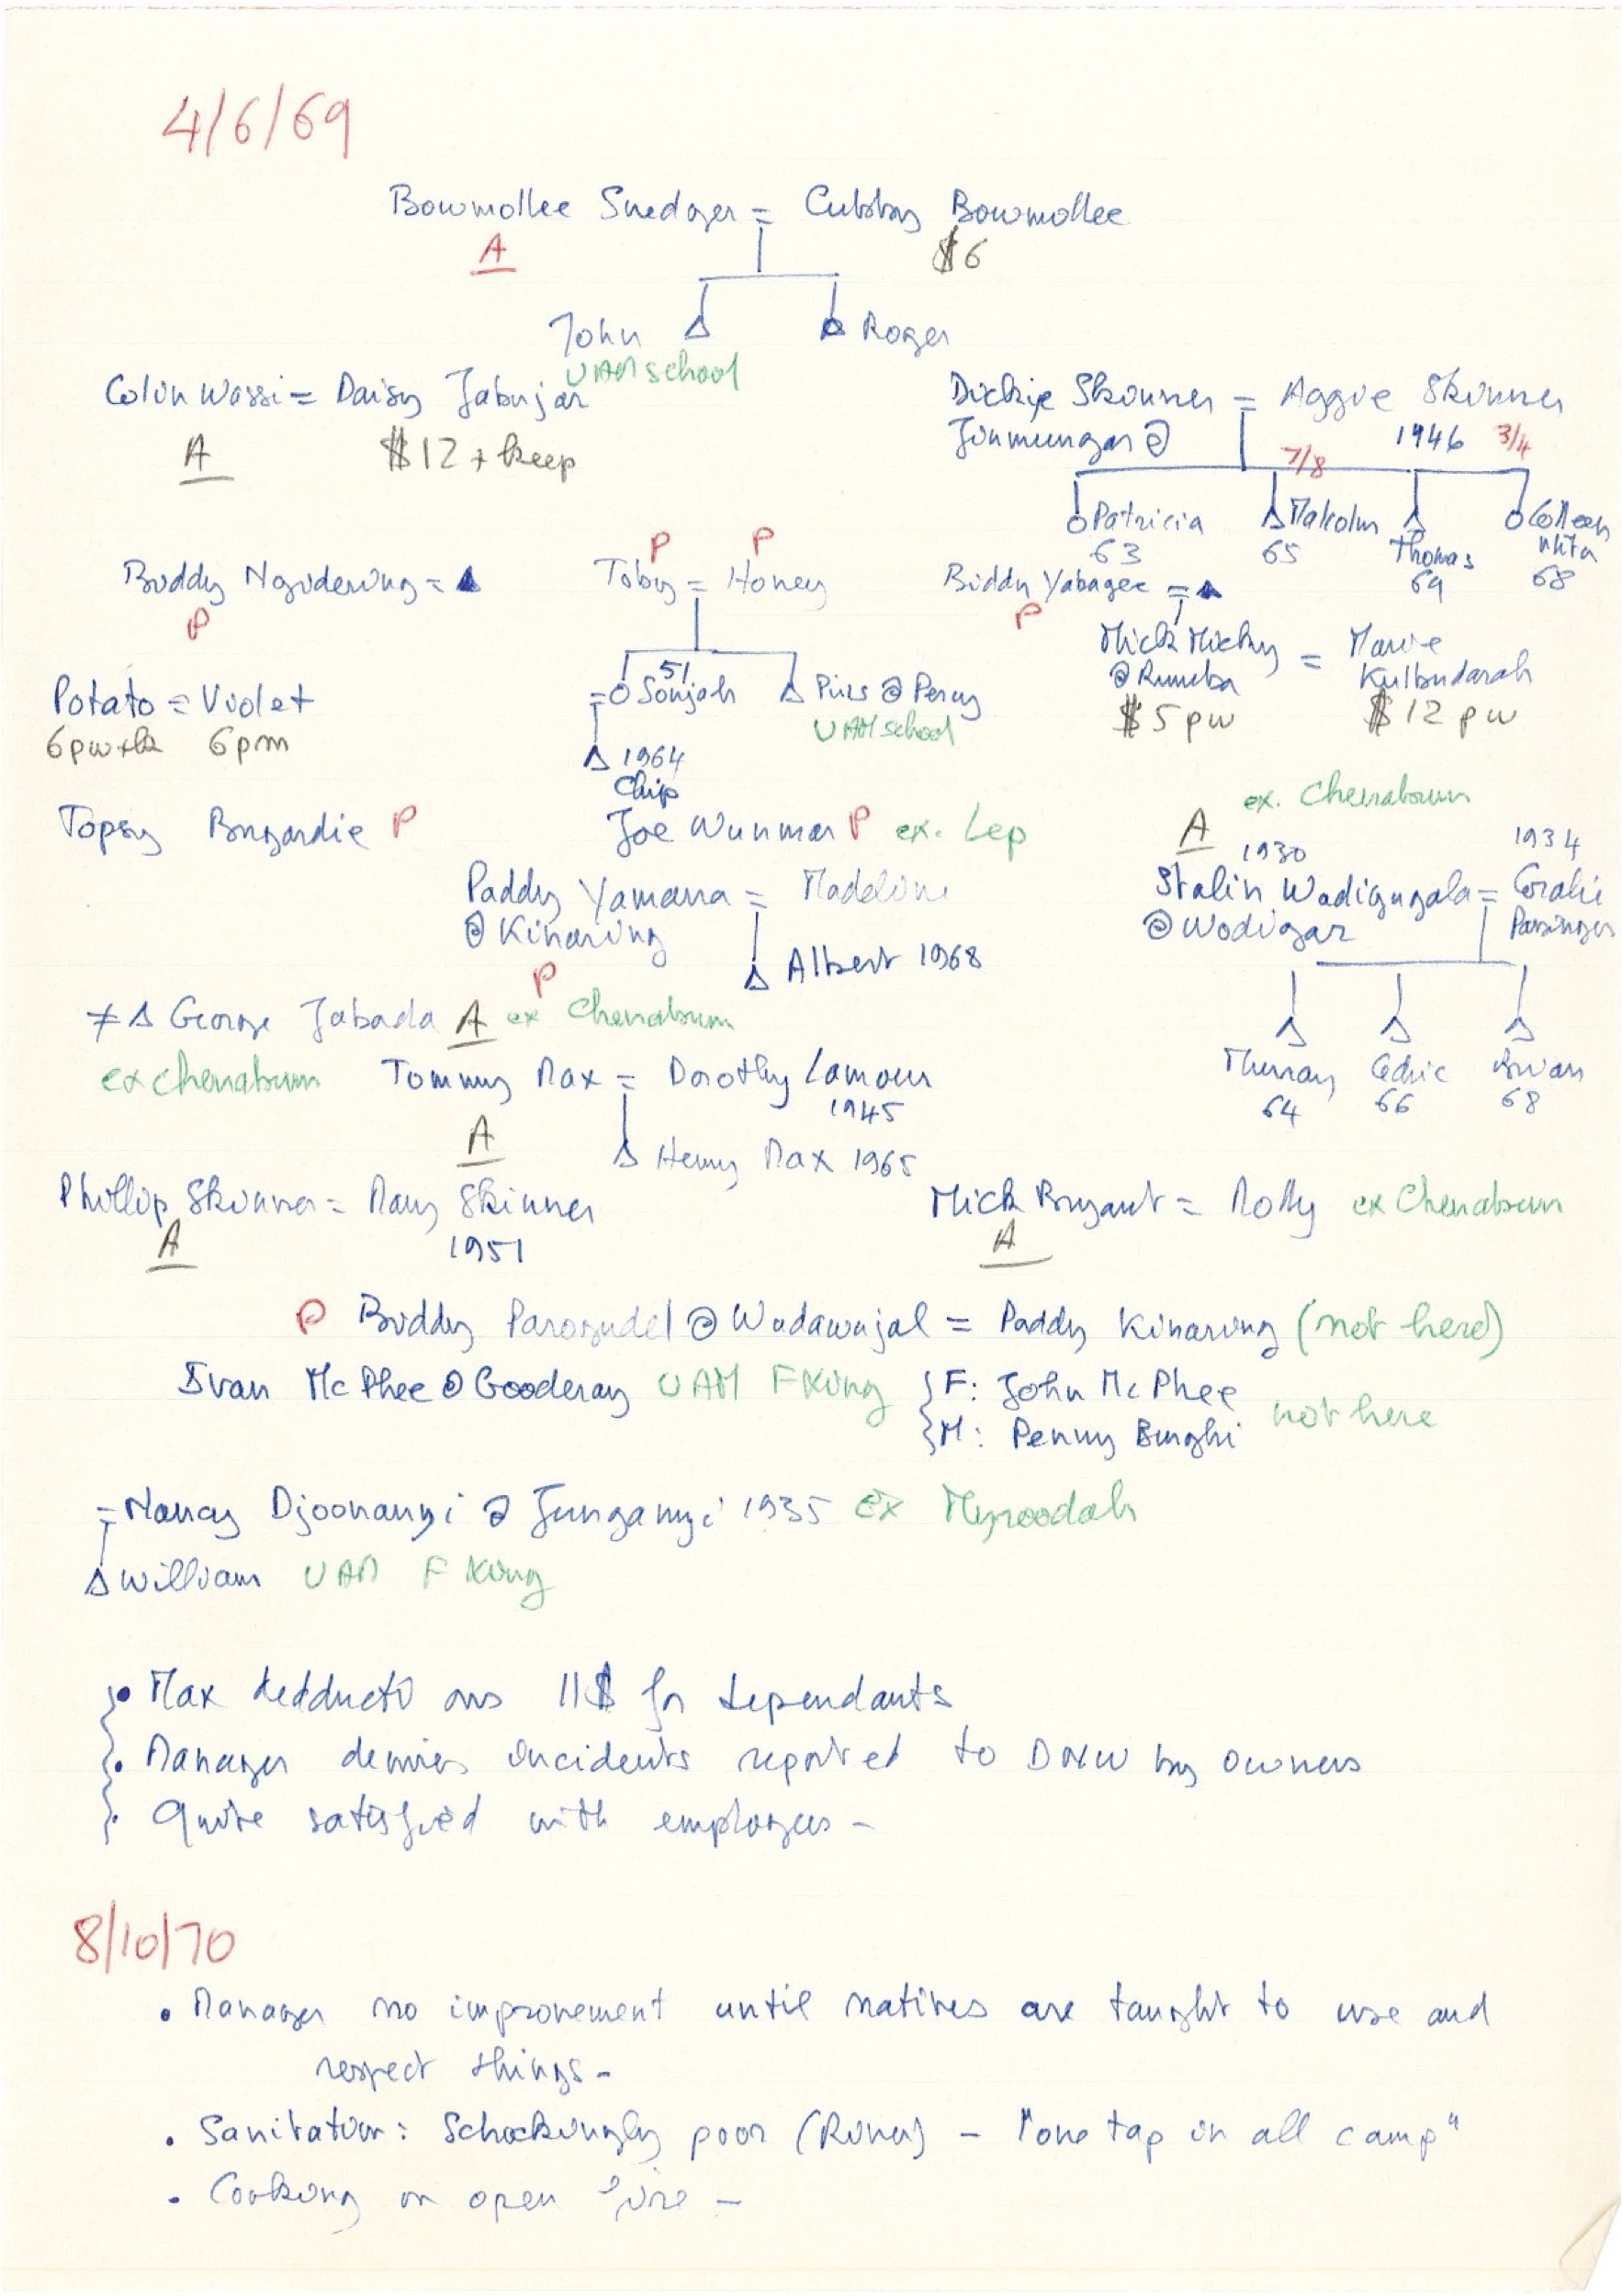 4/6/69
Bowmollee Snedger = Cubby Bowmollee
A $6
John Roger
UAM school
Colin Wassi = Daisy Jabujar
A $12 + keep
Dickie Skinner = Aggie Skinner
Jinmungar @ 1946 3/4
7/8
Patricia Malcolm Thomas Colleen
63 65 69 68
P P
Biddy Nguderung = Toby = Honey
P
Biddy Yabagee =
P
Mick Micky = Marie
@ Rumba Kulbudarah
$5 pw $12 pw
51
= Sonjah @ Percy
UAM school
1964
Chip
Potato = Violet
6pw 6pm
Topsy Bngardie P
Joe Wunmar P ex. Lep
ex. Chenabrun
A
1930 1934
Stalin Wadigugala = Coralie
@ Wodigar
Murray Cedric
64 66 68
Paddy Yamarra = Madeline
@ Kinaring
P
Albert 1968
≠ George Jabada A ex Chenabrun
ex chenabrun
Tommy Max = Dorothy Lamour
1945
A
Henry Max 1965
Phillip Skinner = Mary Skinner
A 1951
Mick Bryant = Molly ex Chenabrun
A
P Biddy @ Wadawajal = Paddy Kinaring (not here)
Ivan McPhee @ Gooderay UAM F King F: John McPhee
M: Penny Burghi not here
= Nancy Djoonanyi @ Junganyi 1935 ex Myroodah
William UAM F King
• Max dedductions 11$ for dependants
• Manager denies incidents reported to DNW by owners
• Quite satisfied with employees -
8/10/70
• Manager no improvement until natives are taught to use and
respect things -
• Sanitation: Schockingly poor (River) - "one tap in all camp"
• Cooking on open fire -